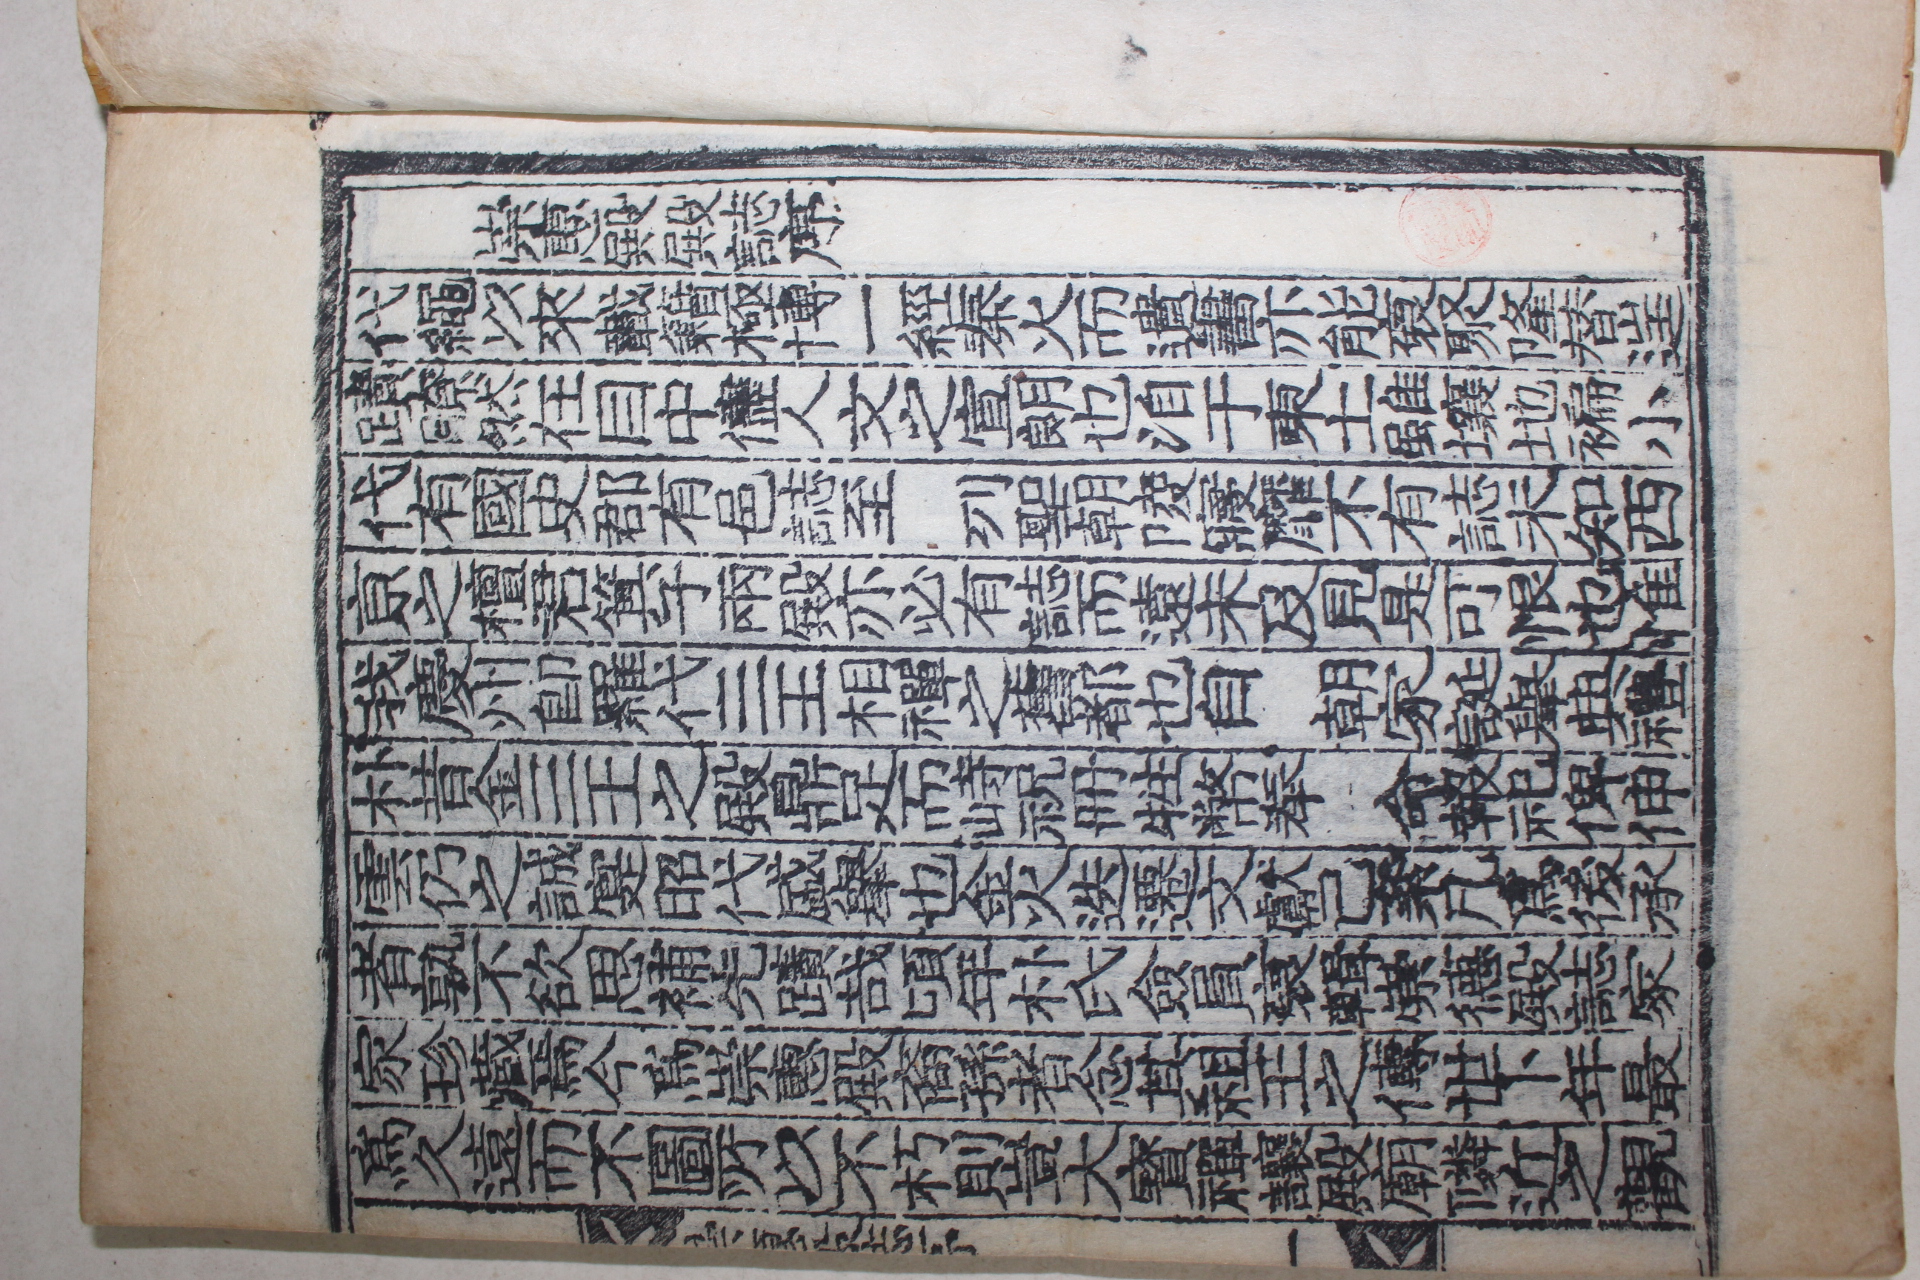 崇惠殿殿誌序
代繩以來載籍極博一經秦火而遺書亦能裒聚隆替逞
蹟瞭然在目中儘人文之宣朗也洎于東土雖壤地褊小
代有國史郡有邑誌至 列聖朝陵寢靡不有誌未知西
京之檀君箕子兩殿亦必有誌而遠未及見是可恨也惟
我慶州卽羅代三王相禪之舊都也自 朝家誕擧典禮
朴昔金三王之殿鼎足而峙祝冊牲幣奉 命報祀俾伸
雲仍之誠寔昭代盛擧也金火迭遷文獻已棄凡爲後承
者孰不欲思補先蹟哉頃年朴氏僉員裒輯崇德殿誌家
家珍藏焉今爲崇惠殿裔孫者念其祖王之傳世卜年最
爲久遠而不圖所以不朽則豈大寶禪讓殿廟隣近之觀
崇惠殿誌序
一